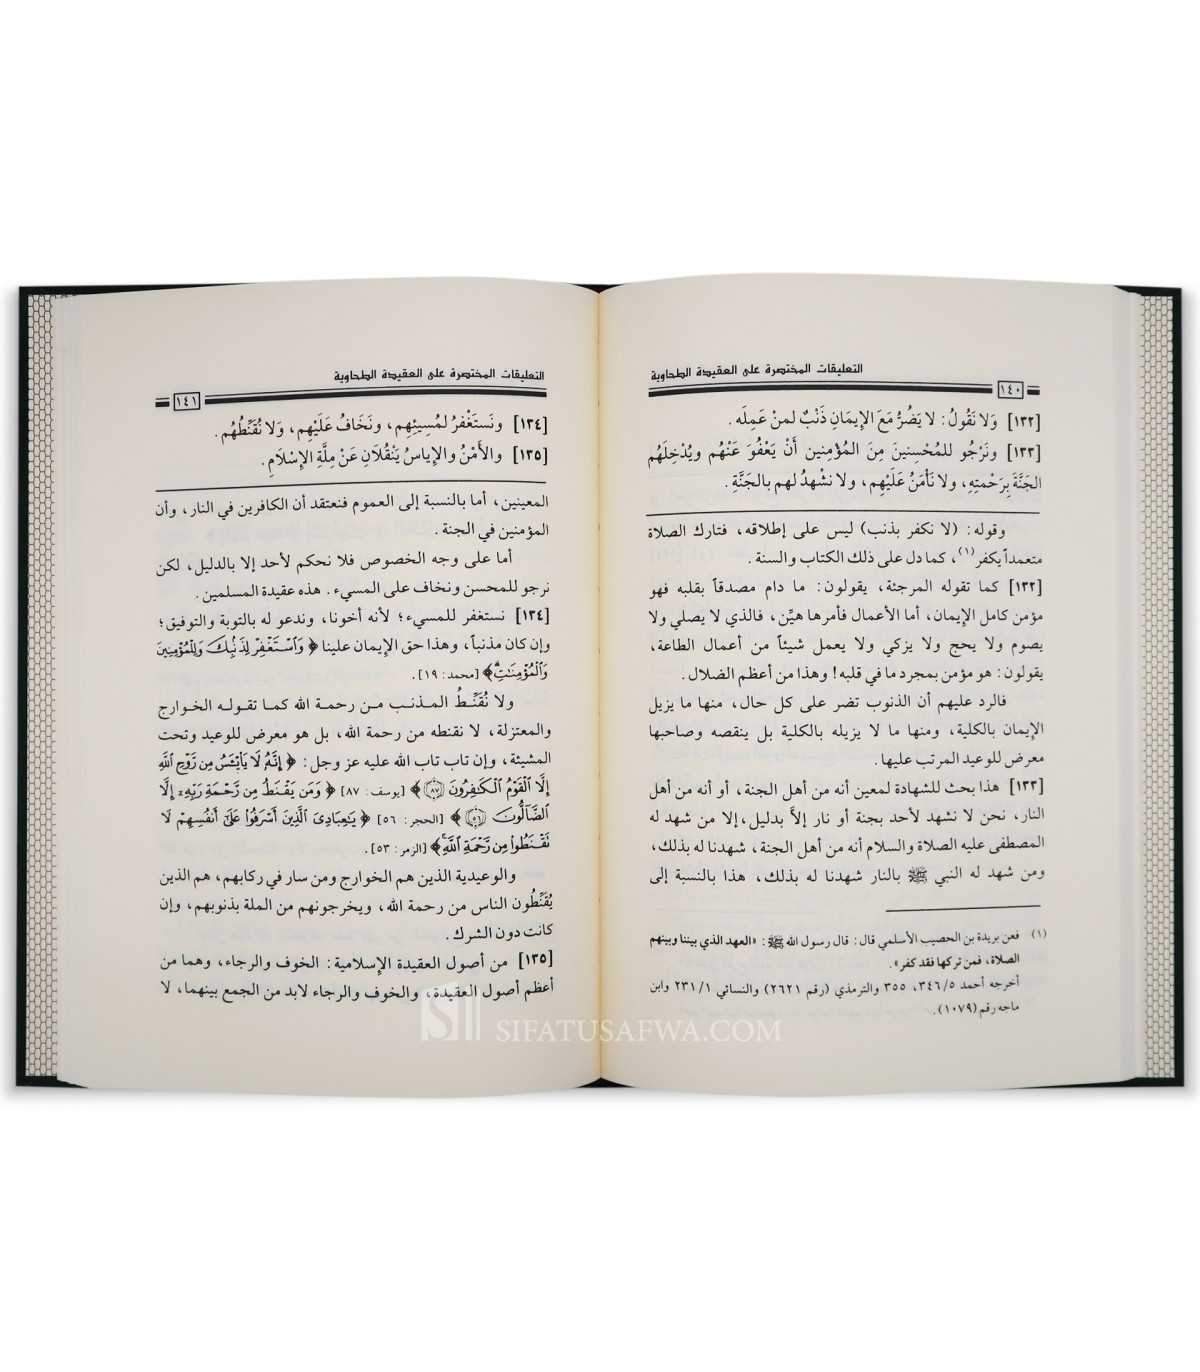 التعليقات المختصرة على العقيدة الطحاوية
١٤٠
[١٣٢] وَلا نَقُولُ: لا يَضُرُّ مَعَ الإِيمَانِ ذَنْبٌ لمنْ عَمِلَه.
[١٣٣] ونَرْجُو للمُحْسِنينَ مِنَ المُؤْمِنين أَنْ يَعْفُوَ عَنْهُم ويُدْخِلَهُم
الجَنَّةَ بِرَحْمتِهِ، ولا نَأْمَنُ عَلَيْهِم، ولا نشْهدُ لهم بالجَنَّةِ.
وقوله: (لا نكفر بذنب) ليس على إطلاقه، فتارك الصلاة
متعمداً يكفر(١)، كما دل على ذلك الكتاب والسنة.
[١٣٢] كما تقوله المرجئة، يقولون: ما دام مصدقاً بقلبه فهو
مؤمن كامل الإيمان، أما الأعمال فأمرها هيِّن، فالذي لا يصلي ولا
يصوم ولا يحج ولا يزكي ولا يعمل شيئاً من أعمال الطاعة،
يقولون: هو مؤمن بمجرد ما في قلبه! وهذا من أعظم الضلال.
فالرد عليهم أن الذنوب تضر على كل حال، منها ما يزيل
الإيمان بالكلية، ومنها ما لا يزيله بالكلية بل ينقصه وصاحبها
معرض للوعيد المرتب عليها.
[١٣٣] هذا بحث للشهادة لمعين أنه من أهل الجنة، أو أنه من أهل
النار، نحن لا نشهد لأحد بجنة أو نار إلاَّ بدليل، إلا من شهد له
المصطفى عليه الصلاة والسلام أنه من أهل الجنة، شهدنا له بذلك،
ومن شهد له النبي ﷺ بالنار شهدنا له بذلك، هذا بالنسبة إلى
(١) فعن بريدة بن الحصيب الأسلمي قال: قال رسول الله ﷺ: «العهد الذي بيننا وبينهم
الصلاة، فمن تركها فقد كفر».
أخرجه أحمد ٣٤٦/٥، ٣٥٥ والترمذي (رقم ٢٦٢١) والنسائي ٢٣١/١ وابن
ماجه رقم (١٠٧٩).
التعليقات المختصرة على العقيدة الطحاوية
١٤١
[١٣٤] ونَستَغْفرُ لمُسِيئِهِم، ونَخَافُ عَلَيْهِم، وَلا نُقَنِّطُهُم.
[١٣٥] والأَمْنُ والإِياسُ يَنْقُلَانِ عَنْ مِلَّةِ الإِسْلَامِ.
المعينين، أما بالنسبة إلى العموم فنعتقد أن الكافرين في النار، وأن
المؤمنين في الجنة.
أما على وجه الخصوص فلا نحكم لأحد إلا بالدليل، لكن
نرجو للمحسن ونخاف على المسيء. هذه عقيدة المسلمين.
[١٣٤] نستغفر للمسيء؛ لأنه أخونا، وندعو له بالتوبة والتوفيق؛
وإن كان مذنباً، وهذا حق الإيمان علينا ﴿وَٱسۡتَغۡفِرۡ لِذَنۢبِكَ وَلِلۡمُؤۡمِنِينَ
وَٱلۡمُؤۡمِنَٰتِۗ﴾ [محمد: ١٩].
ولا نُقَنِّطُ المذنب من رحمة الله كما تقوله الخوارج
والمعتزلة، لا نقنطه من رحمة الله، بل هو معرض للوعيد وتحت
المشيئة، وإن تاب تاب الله عليه عز وجل: ﴿إِنَّهُۥ لَا يَاْيۡـَٔسُ مِن رَّوۡحِ ٱللَّهِ
إِلَّا ٱلۡقَوۡمُ ٱلۡكَٰفِرُونَ ٨٧﴾ [يوسف: ٨٧] ﴿وَمَن يَقۡنَطُ مِن رَّحۡمَةِ رَبِّهِۦٓ إِلَّا
ٱلضَّآلُّونَ ٥٦﴾ [الحجر: ٥٦] ﴿يَٰعِبَادِيَ ٱلَّذِينَ أَسۡرَفُواْ عَلَىٰٓ أَنفُسِهِمۡ لَا
تَقۡنَطُواْ مِن رَّحۡمَةِ ٱللَّهِۚ﴾ [الزمر: ٥٣].
والوعيدية الذين هم الخوارج ومن سار في ركابهم، هم الذين
يُقَنِّطُون الناس من رحمة الله، ويخرجونهم من الملة بذنوبهم، وإن
كانت دون الشرك.
[١٣٥] من أصول العقيدة الإسلامية: الخوف والرجاء، وهما من
أعظم أصول العقيدة، والخوف والرجاء لابد من الجمع بينهما، لا
SIFATUSAFWA.COM